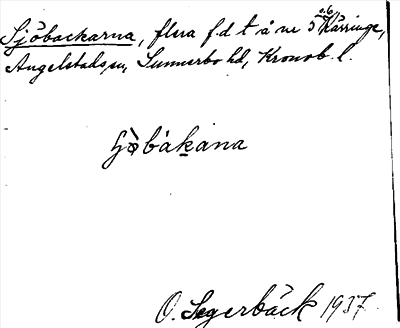 Sjöbackarna, flera f.d t å nr 5 o.6, Kärringe,
Angelstads sn, Sunnerbo hd, Kronob. l.
ʃö̀bákana
O. Segerbäck 1937.